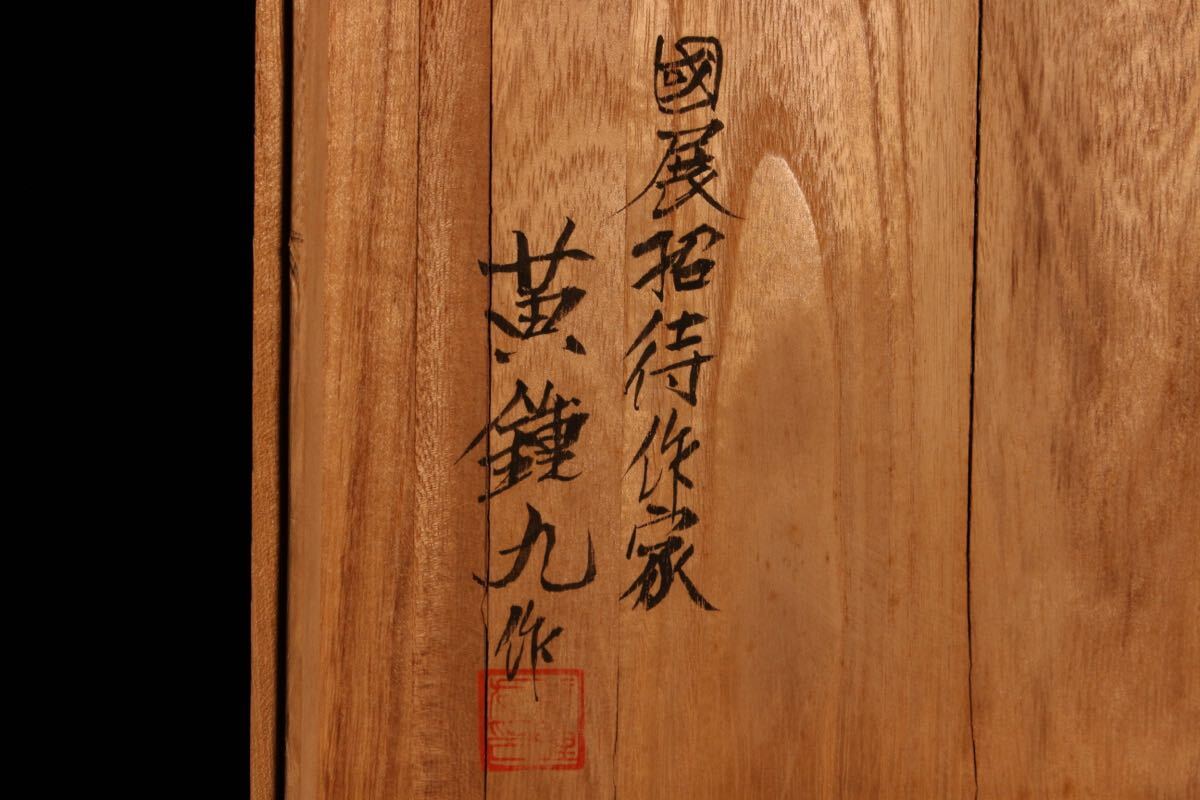 國展招待作家
黃鍾九作